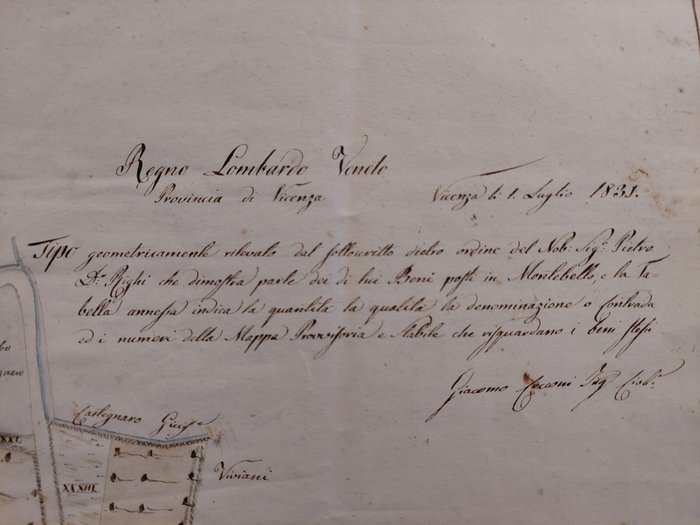 Regno Lombardo Veneto
Provincia di Vicenza
Vicenza li 1. Luglio 1831.
Tipo geometricamente rilevato dal sottoscritto dietro ordine del Nob: Sigr Pietro
Dr Righi che dimostra parte dei di lui Beni posti in Montebello, e la Ta-
bella annessa indica la quantità la qualità la denominazione o contrada
ed i numeri della Mappa Provvisoria e stabile che risguardano i beni stessi
Giacomo Cecconi Ing Civile
Castegnaro Giuse
XXI
XXXIII
Viviani